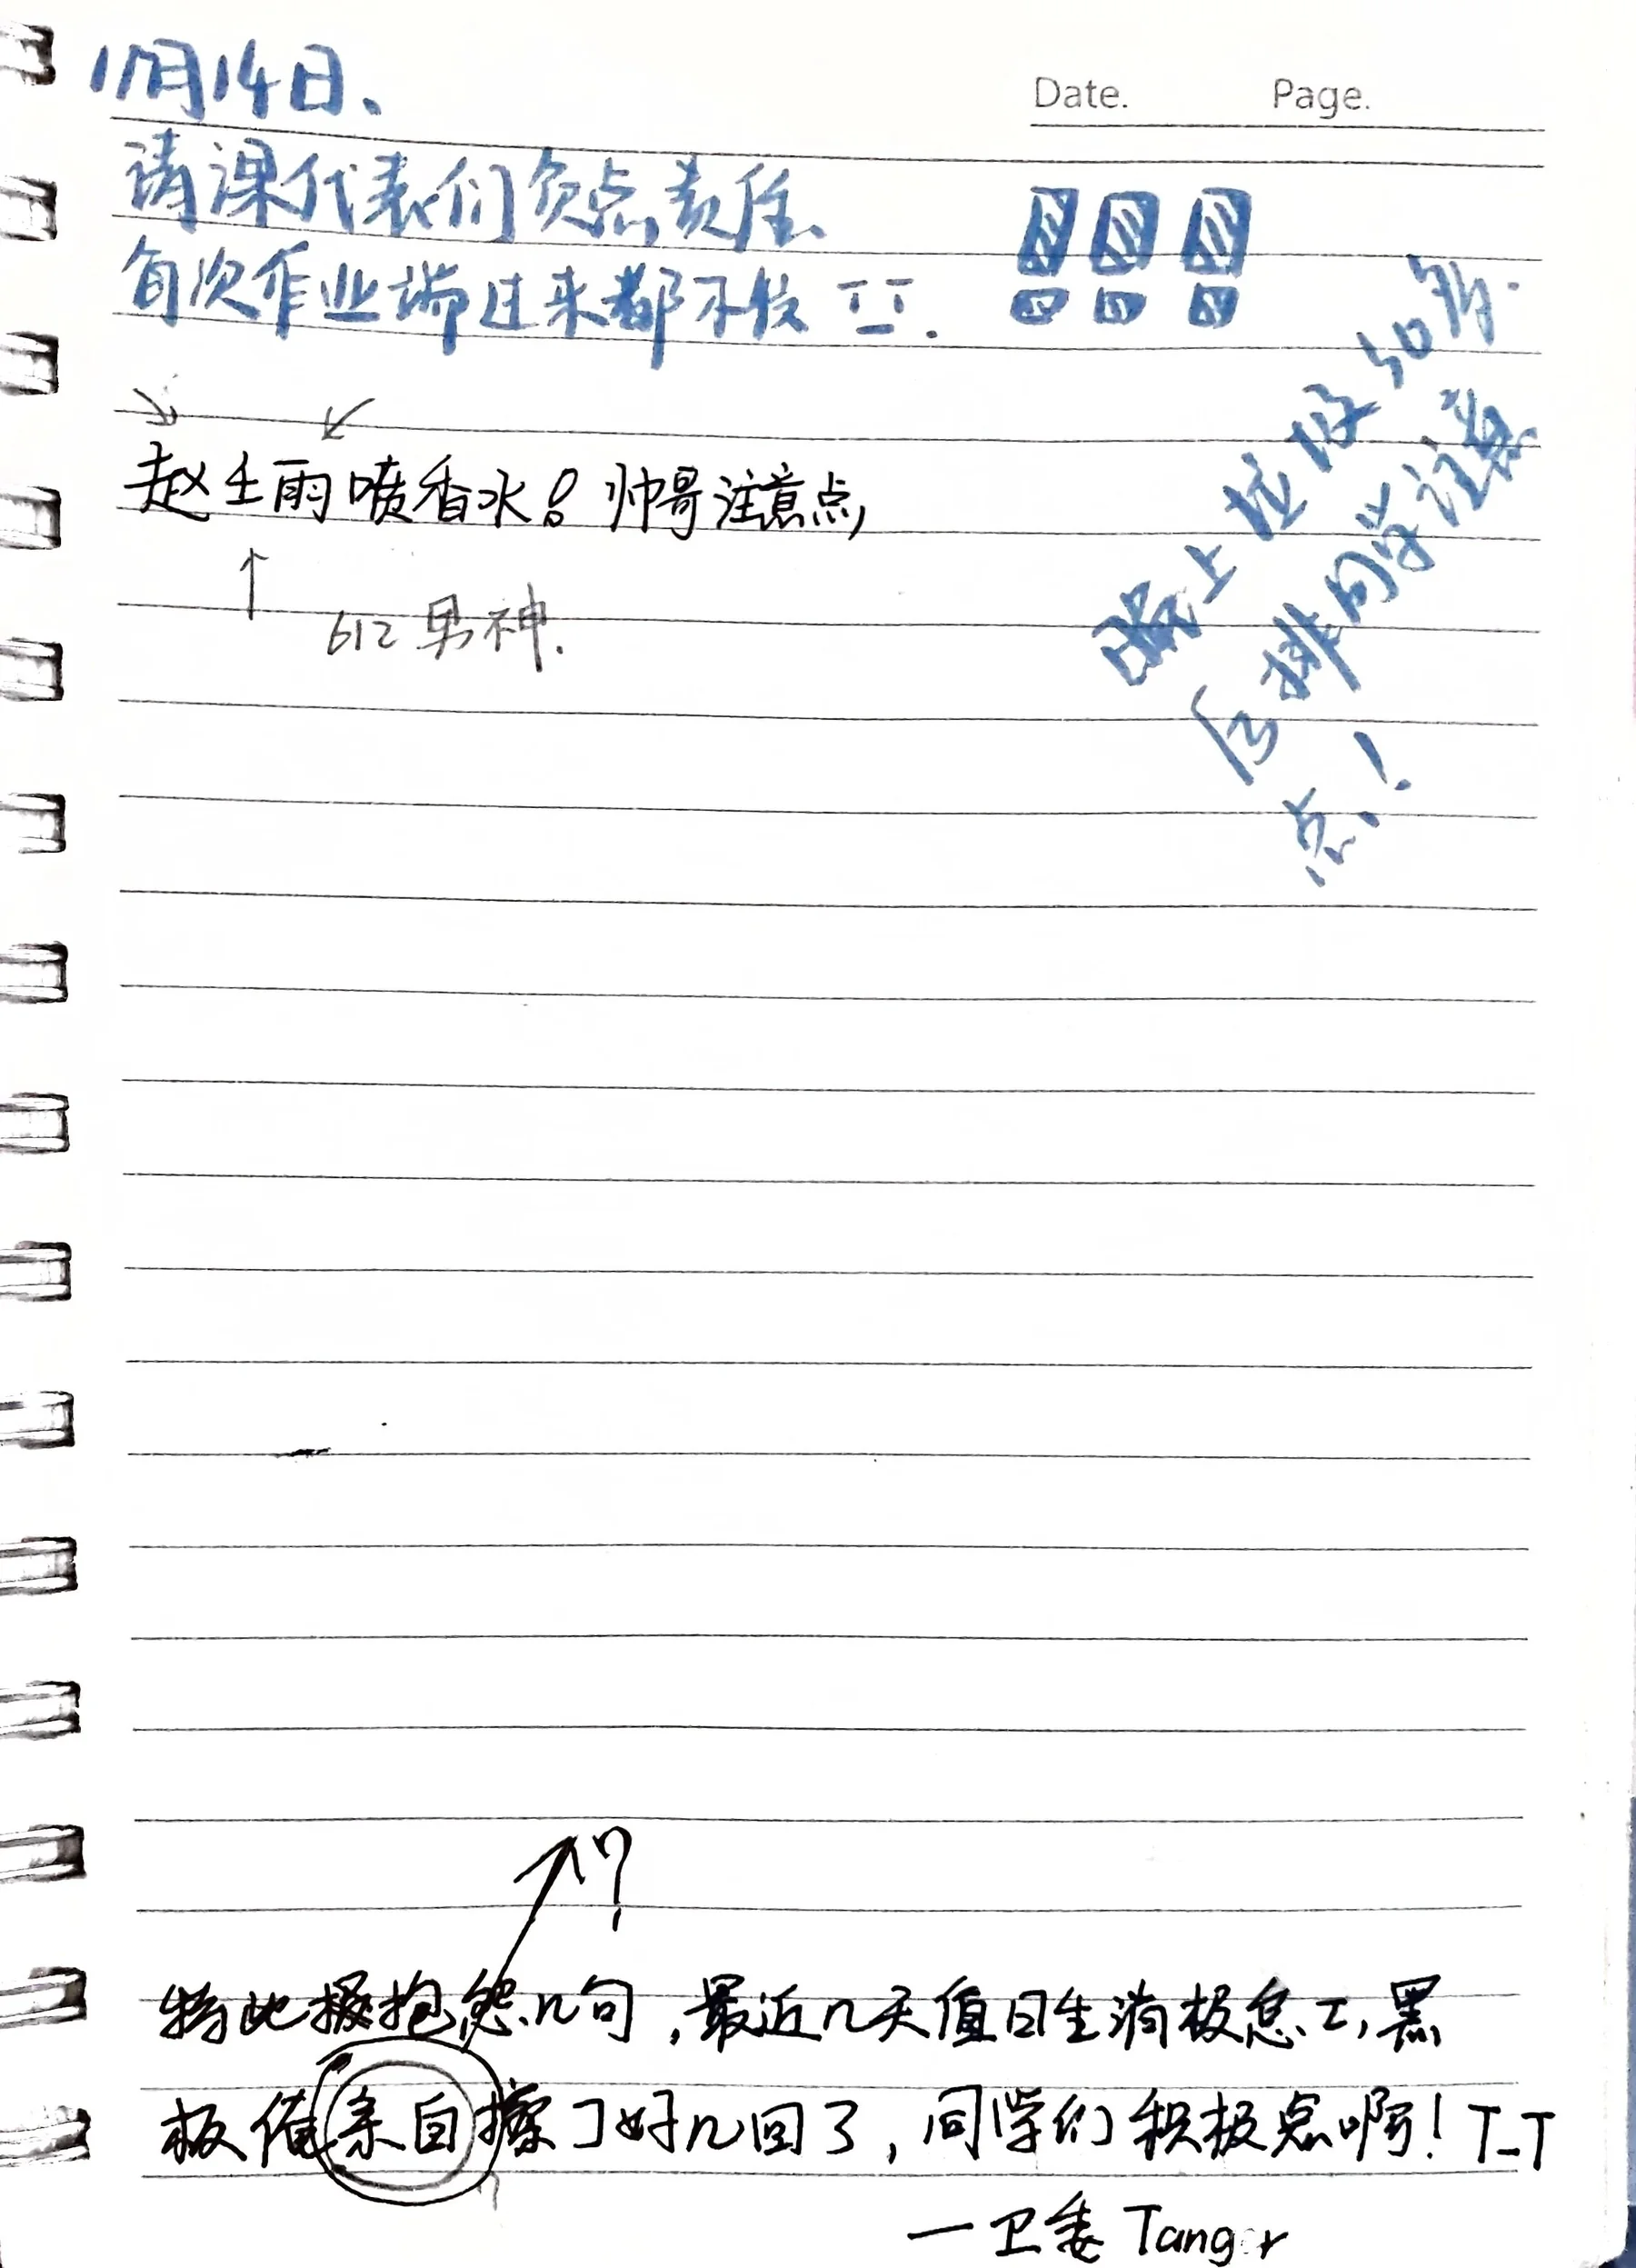 11月14日、
Date. Page.
请课代表们负点责任、
每次作业端过来都不收 T_T.
赵壬雨喷香水！帅哥注意点，
612 男神.
晚上垃圾
后排同学注意
点！
？
特此抱怨几句，最近几天值日生消极怠工，黑
板俺亲自擦了好几回了，同学们积极点啊！T_T
一卫委